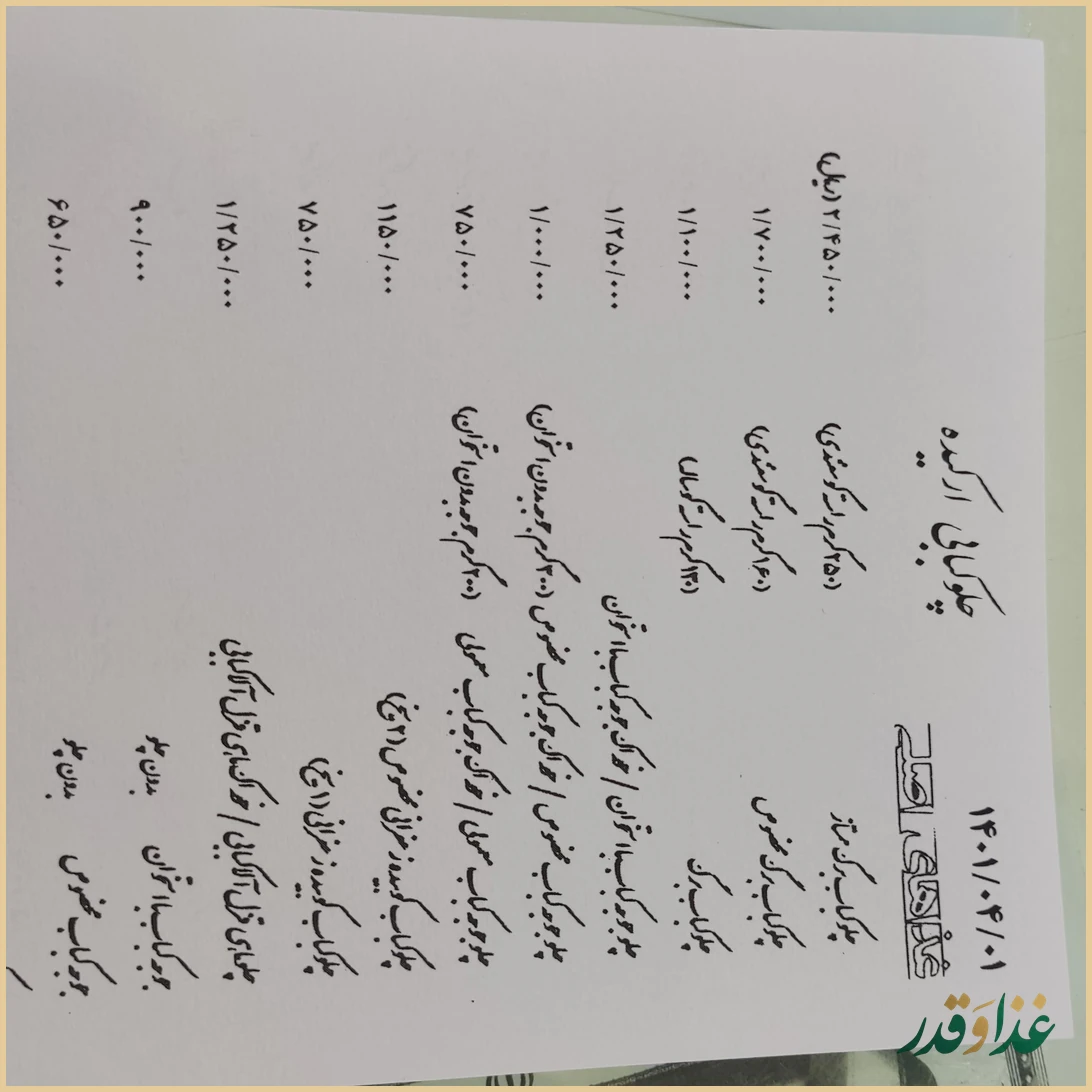 ۱۴۰۱/۰۴/۰۱
چلوکبابی ارکیده
غذاهای اصلی
چلوکباب برگ ممتاز (۲۵۰گرم راسته گوسفندی) ۲/۴۵۰/۰۰۰ (ریال)
چلوکباب برگ مخصوص (۱۶۰گرم راسته گوسفندی) ۱/۷۰۰/۰۰۰
چلوکباب برگ (۱۳۰گرم راسته گوساله) ۱/۱۰۰/۰۰۰
چلو جوجه کباب با استخوان / خوراک جوجه کباب با استخوان ۱/۲۵۰/۰۰۰
چلو جوجه کباب مخصوص / خوراک جوجه کباب مخصوص (۳۰۰گرم جوجه بدون استخوان) ۱/۰۰۰/۰۰۰
چلو جوجه کباب معمولی / خوراک جوجه کباب معمولی (۲۰۰گرم جوجه بدون استخوان) ۷۵۰/۰۰۰
چلوکباب کوبیده زعفرانی مخصوص (۲ سیخ) ۱۱۵۰/۰۰۰
چلوکباب کوبیده زعفرانی (۱ سیخ) ۷۵۰/۰۰۰
چلو ماهی قزل آلا کبابی / خوراک ماهی قزل آلا کبابی ۱/۲۵۰/۰۰۰
جوجه کباب با استخوان بدون چلو ۹۰۰/۰۰۰
جوجه کباب مخصوص بدون چلو ۶۵۰/۰۰۰
غذا و قدر